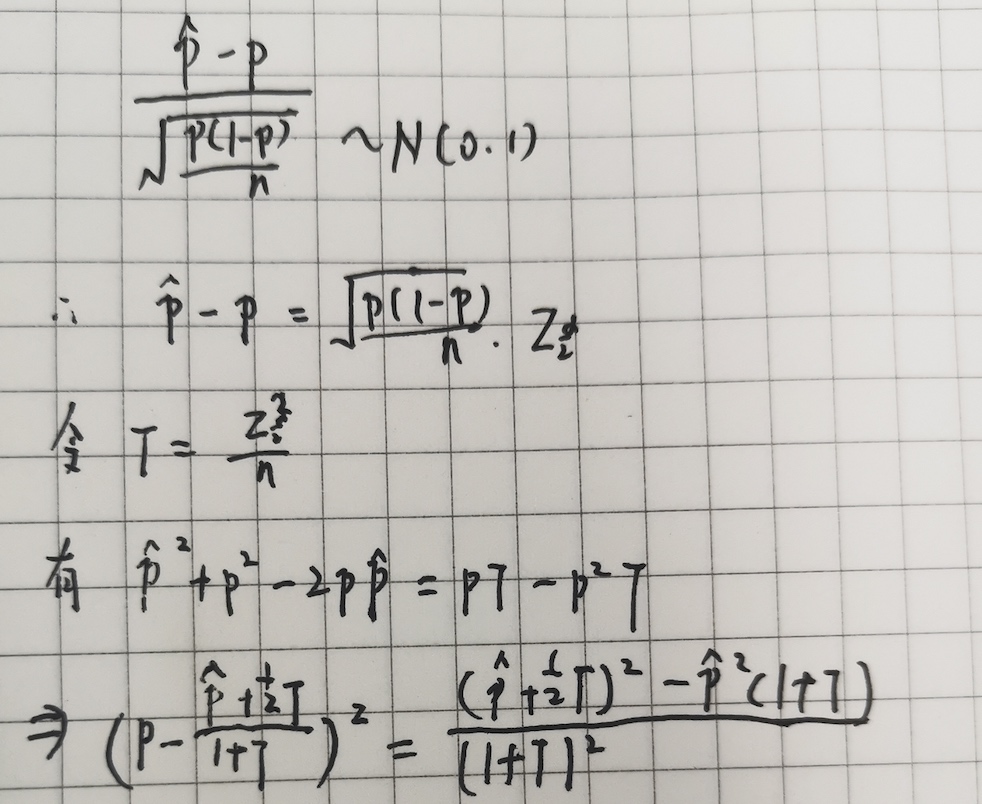 (p̂ - p) / √(p(1-p)/n) ~ N(0.1)
∴ p̂ - p = √(p(1-p)/n) · Z_{α/2}
令 T = Z²_{α/2} / n
有 p̂² + p² - 2pp̂ = pT - p²T
⇒ (p - (p̂ + ½T)/(1+T))² = ((p̂ + ½T)² - p̂²(1+T)) / (1+T)²